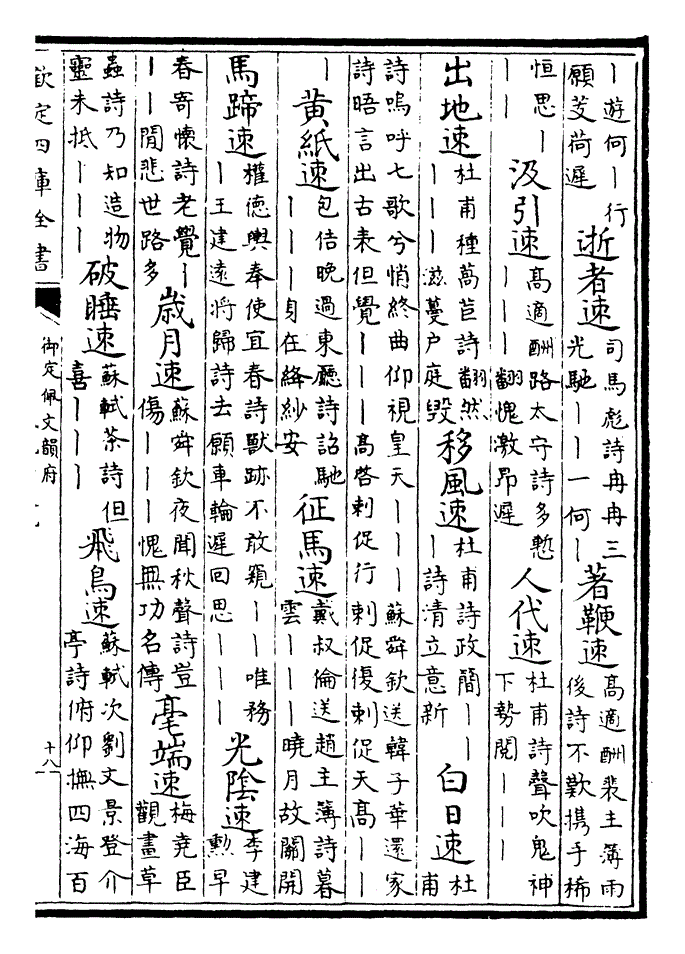 ｜遊何｜行
願芰荷遲
逝者速
司馬彪詩冉冉三
光馳｜｜一何｜
著鞭速
高適酬裴主簿雨
後詩不歡攜手稀
恒思｜
｜｜
汲引速
高適酬路太守詩多慙
｜｜｜翻愧激昂遲
人代速
杜甫詩聲吹鬼神
下勢閱｜｜｜
出地速
杜甫種萵苣詩翻然
｜｜｜滋蔓戶庭毀
移風速
杜甫詩政簡｜｜
｜詩清立意新
白日速
杜
甫
詩嗚呼七歌兮悄終曲仰視皇天｜｜｜蘇舜欽送韓子華還家
詩晤言出古表但覺｜｜｜高啓剌促行剌促復剌促天高｜｜
｜
黃紙速
包佶晚過東廳詩詔馳
｜｜｜身在絳紗安
征馬速
戴叔倫送趙主簿詩暮
雲｜｜｜曉月故關開
馬蹄速
權德輿奉使宜春詩獸跡不放窺｜｜唯務
｜王建遠將歸詩去願車輪遲回思｜｜｜
光陰速
李建
勲早
春寄懷詩老覺｜
｜｜閒悲世路多
歲月速
蘇舜欽夜聞秋聲詩豈
傷｜｜｜愧無功名傳
毫端速
梅堯臣
觀畫草
蟲詩乃知造物
靈未抵｜｜｜
破睡速
蘇軾茶詩但
喜｜｜｜
飛鳥速
蘇軾次劉文景登介
亭詩俯仰撫四海百
欽定四庫全書
御定佩文韻府
十八